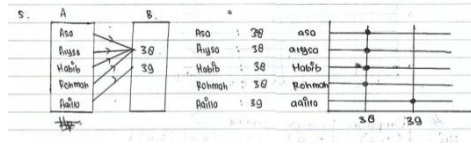 5. A B.
Asa
Arysa
Habib
Rohmah
Aqilla
38
39
Asa : 38
Arysa : 38
Habib : 38
Rohmah : 38
Aqilla : 39
asa
arysa
Habib
Rohmah
aqilla
38 39